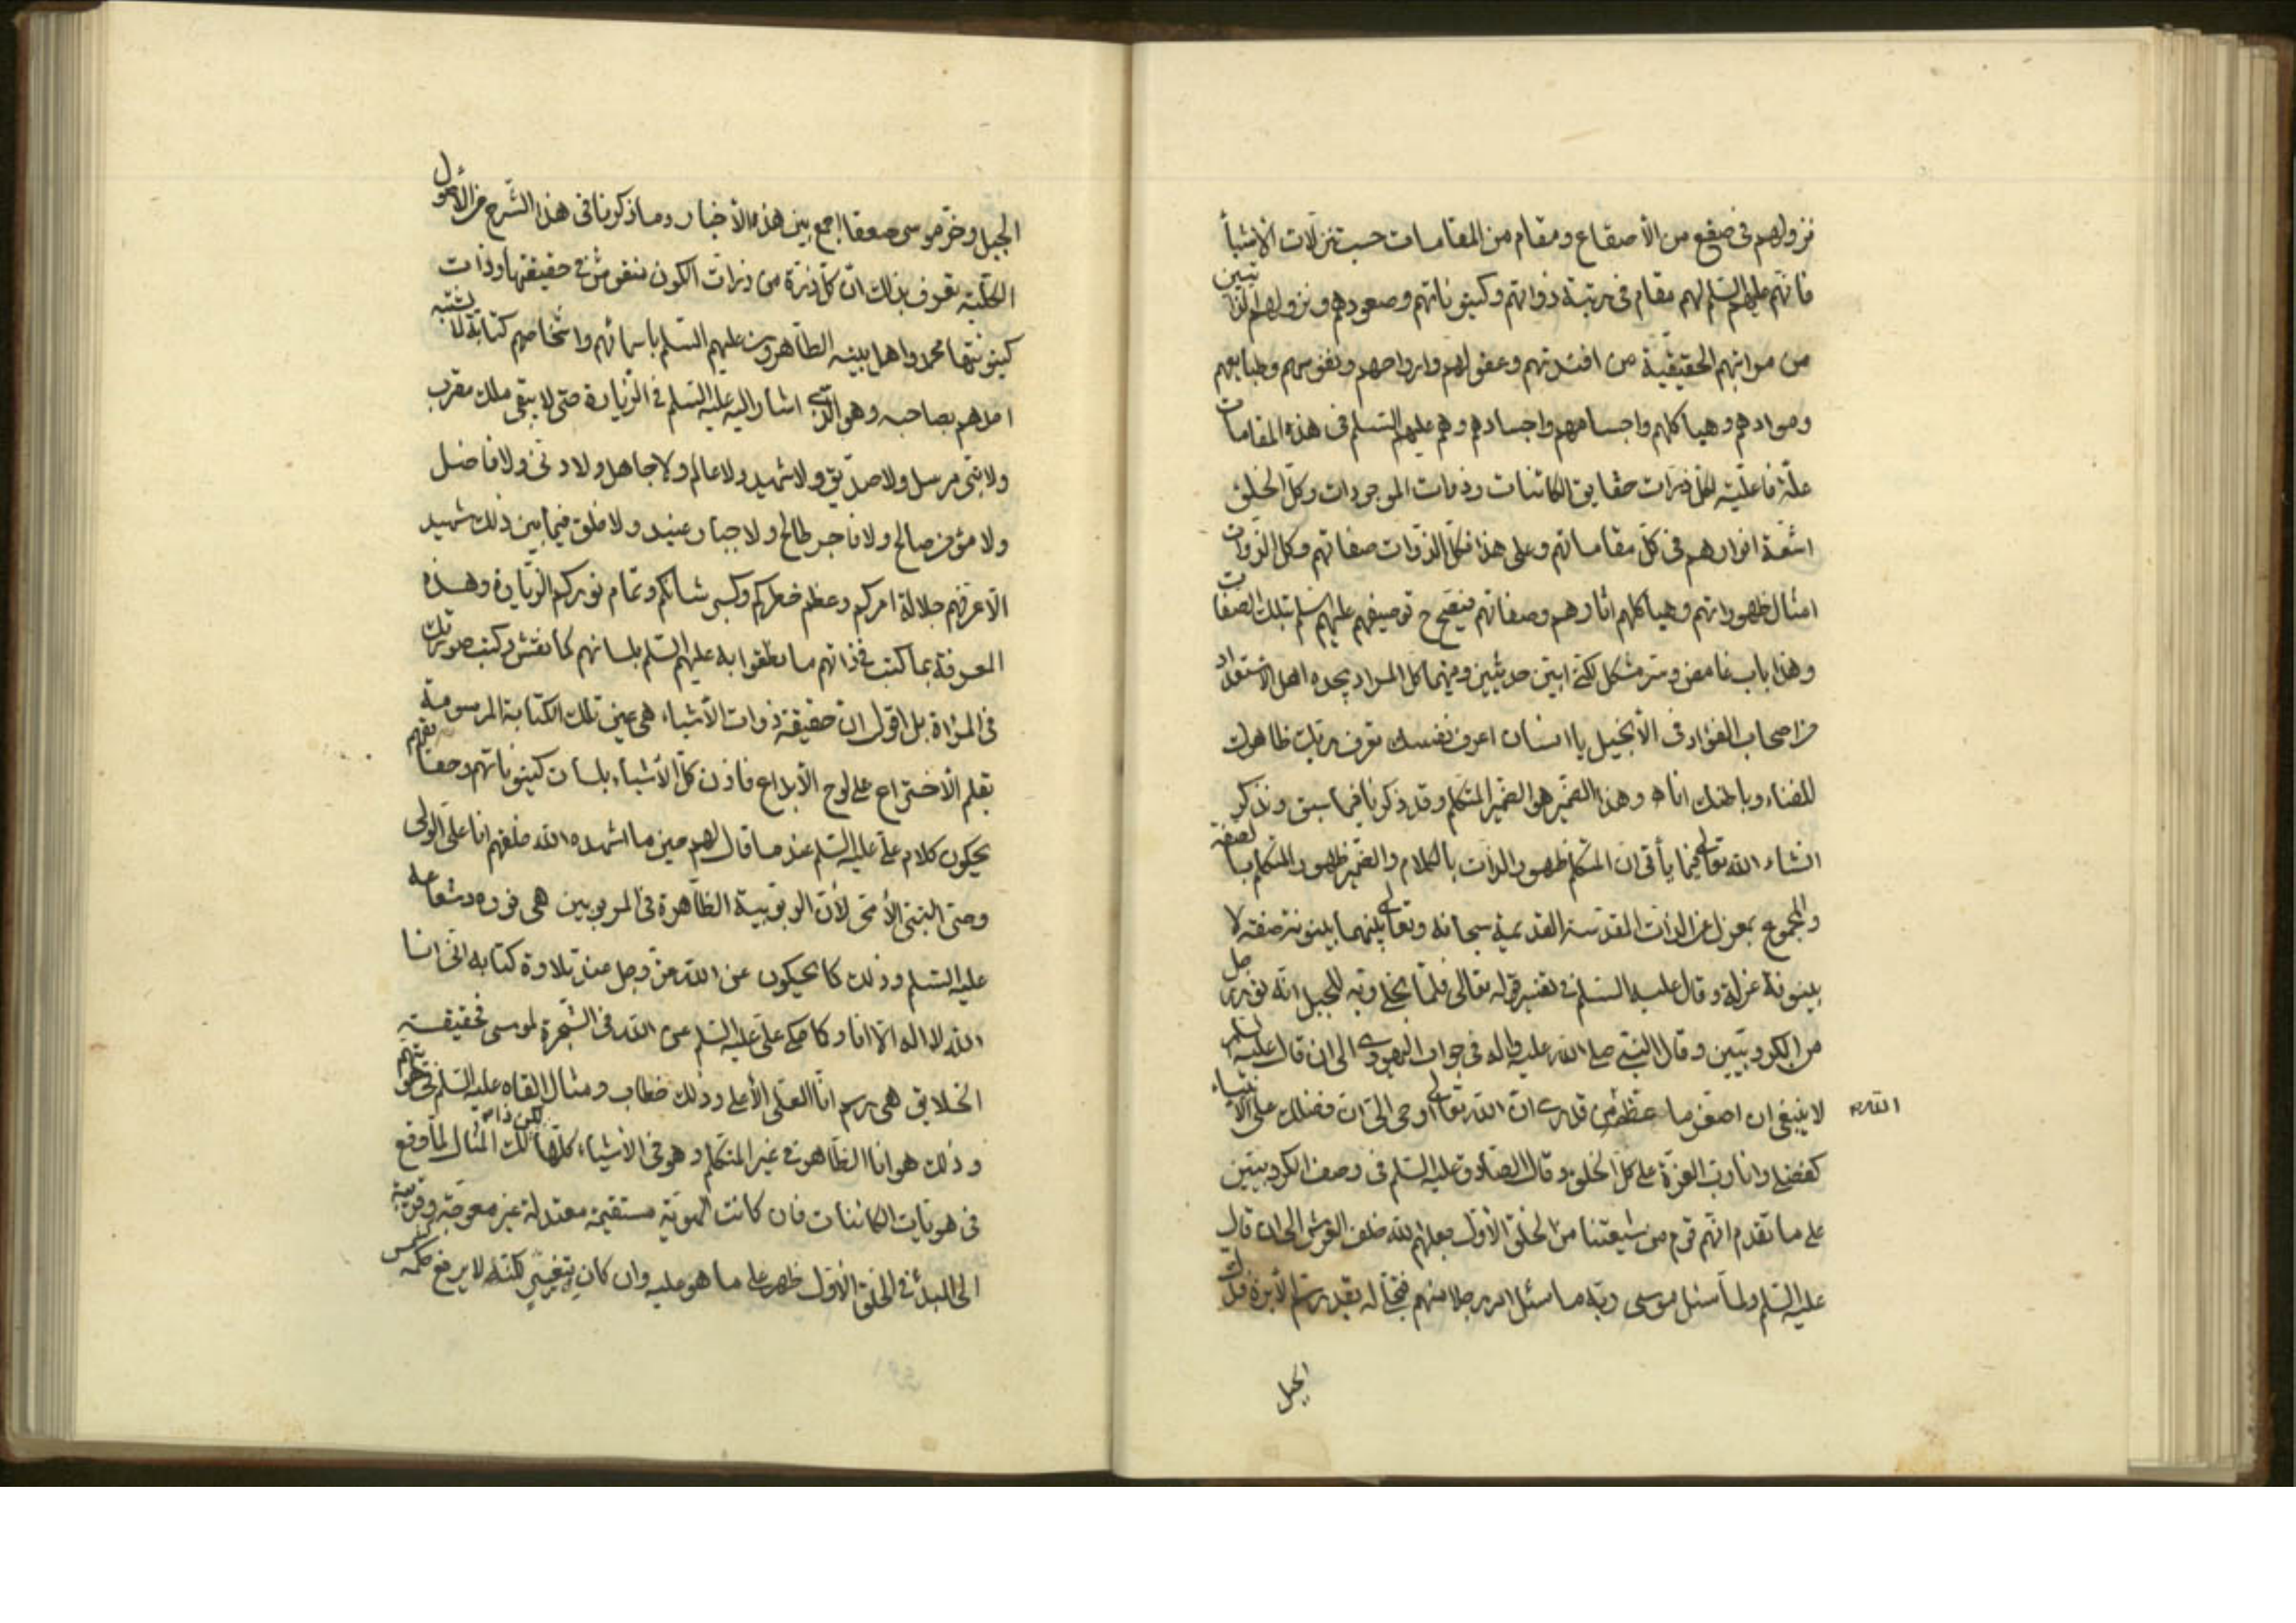 نزولهم فی صقع من الأصقاع ومقام من المقامات حسب تنزلات الاشیأ
فانهم علیهم السلم لهم مقام فی مرتبة ذواتهم وکینوناتهم وصعودهم ونزولهم
من مراتبهم الحقیقیّة من افئدتهم وعقولهم وارواحهم ونفوسهم وطبایعهم
وموادهم وهیاکلهم واجسامهم واجسادهم وهم علیهم السلم فی هذه المقامات
علّة فاعلیّة لکل ذرّات حقایق الکائنات وذوات الموجودات وکل الخلق
اشعّة انوارهم فی کلّ مقاماتهم وعلی هذا فکلّ الذوات صفاتهم وکل الذوات
امثال ظهوراتهم وهیاکلهم اثارهم وصفاتهم فیصحّ ح توصیفهم علیهم السلم بتلک الصفات
وهذا باب غامض وسرّ مشکل لکنّی ابیّن حدیثین وفیهما کل المراد یجده اهل الاستعداد
من اصحاب الفؤاد فی الأنجیل یا انسان اعرف نفسک تعرف ربک ظاهرک
للفناء وباطنک انا ه وهذا الضمیر هو الضمیر المتکلم وقد ذکرنا فیما سبق ونذکر
انشاء الله تعالی فیما یأتی ان المتکلم ظهور الذات بالکلام والضمیر ظهور المتکلم بالصفة
والمجموع بمعزل عن الذات المقدّسة القدیمیة سبحانه وتعالی بینهما بینونة صفة لا
بینونة عزلة وقال علیه السلم فی تفسیر قوله تعالی فلمّا تجلی ربه للجبل انّه نور رجل
من الکروبیّین وقال النبی صلی الله علیه واله فی جواب الیهودی الی ان قال علیه السلم
لا ینبغی ان اصغّر ما عظّم من قدری ان الله تعالی اوحی الیّ ان فضلک علی الانبیاء
الله
کفضلی وانا ربّ العزّة علی کلّ الخلق وقال الصادق علیه السلم فی وصف الکروبیّین
علی ما تقدم انّهم قوم من شیعتنا من الخلق الأوّل جعلهم الله خلف العرش الی ان قال
علیه السلم ولمّا سئل موسی ربّه ما سئل امر رجلا منهم فتجلّی له بقدر سمّ الأبرة فدک
الجبل
الجبل وخرّ موسی صعقا اجمع بین هذه الأخبار وما ذکرنا فی هذا الشرح من الأصول
الکلیّة تعرف بذلک انّ کلّ ذرّة من ذرات الکون منقوش فی حقیقتها وذات
کینونتها محمد واهل بیته الطّاهرون علیهم السلم باسمائهم واشخاصهم کتابة لا یشتبه
احدهم بصاحبه وهو الّذی اشار الیه علیه السلم فی الزیارة حتی لا یبقی ملک مقرب
ولا نبیّ مرسل ولا صدّیق ولا شهید ولا عالم ولا جاهل ولا دنیّ ولا فاضل
ولا مؤمن صالح ولا فاجر طالح ولا جبار عنید ولا خلق فیما بین ذلک شهید
الّا عرّفهم جلالة امرکم وعظم خطرکم وکبر شانکم وتمام نورکم الزیارة وهذه
المعرفة بما کتب فی ذاتهم ما نطقوا به علیهم السلم بلسانهم کما نقش وکتب صورتک
فی المرآة بل اقول ان حقیقة ذوات الأشیاء هی عین تلک الکتابة المرسومة
بقلم الأختراع علی لوح الأبداع فاذن کلّ الأشیاء بلسان کینوناتهم وحقایقهم
یحکون کلام علیّ علیه السلم عند ما قال لهم حین ما اشهده الله خلقهم انا علیّ الولی
وصیّ النبیّ الأمّی لأن الربوبیة الظاهرة فی المربوبین هی نوره وشعاعه
علیه السلم وذلک کما یحکون عن الله عزّ وجل عند تلاوة کتابه انّی انا
الله لا اله الّا انا وکما حکی علیّ علیه السلم عن الله فی الشجرة لموسی فحقیقة
الخلایق هی رسم انا العلیّ الأعلی وذلک خطاب ومثال القاه علیه السلم فی هویّتهم
وذلک هو انا الظاهر فی غیر المتکلم وهو فی الأشیاء کلّها لکن ذلک المثال لمّا وقع
فی هویات الکائنات فان کانت الهویّة مستقیمة معتدلة غیر معوجّة وقریبة
الی المبدأ فی الخلق الأوّل ظهر علی ما هو علیه وان کان بتغییر لکنّه لا یرفع حکمه